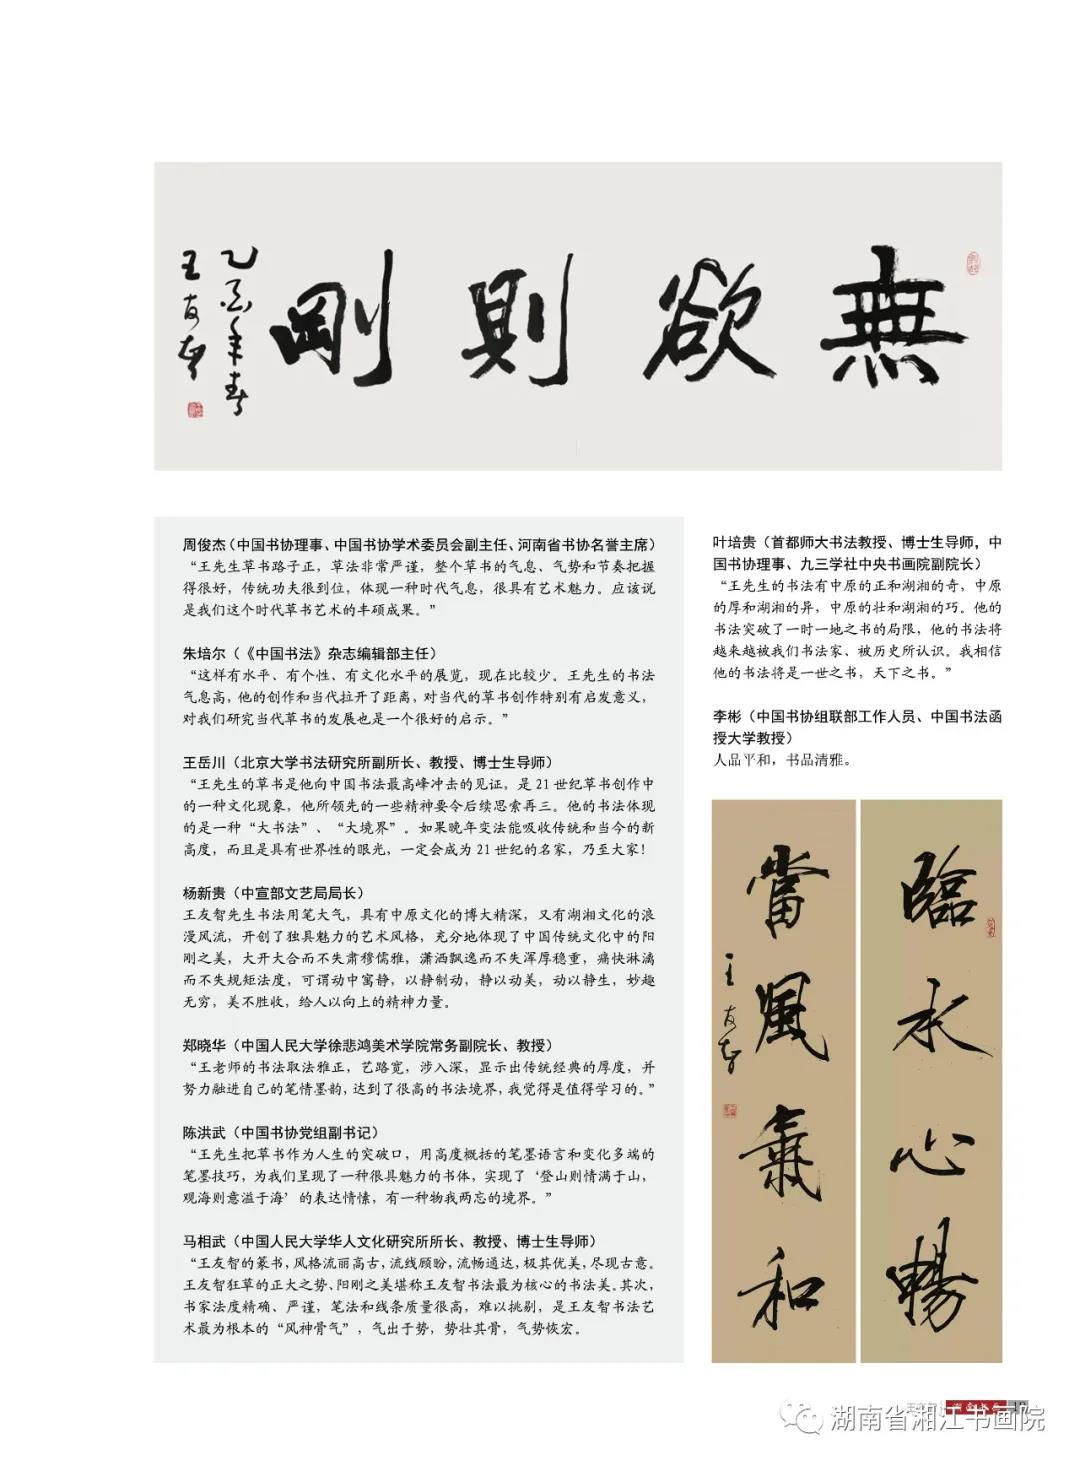 無欲則剛
乙酉年春
王友智
周俊杰（中国书协理事、中国书协学术委员会副主任、河南省书协名誉主席）
“王先生草书路子正，草法非常严谨，整个草书的气息、气势和节奏把握
得很好，传统功夫很到位，体现一种时代气息，很具有艺术魅力。应该说
是我们这个时代草书艺术的丰硕成果。”
朱培尔（《中国书法》杂志编辑部主任）
“这样有水平、有个性、有文化水平的展览，现在比较少。王先生的书法
气息高，他的创作和当代拉开了距离，对当代的草书创作特别有启发意义，
对我们研究当代草书的发展也是一个很好的启示。”
王岳川（北京大学书法研究所副所长、教授、博士生导师）
“王先生的草书是他向中国书法最高峰冲击的见证，是21世纪草书创作中
的一种文化现象，他所领先的一些精神要令后续思索再三。他的书法体现
的是一种“大书法”、“大境界”。如果晚年变法能吸收传统和当今的新
高度，而且是具有世界性的眼光，一定会成为21世纪的名家，乃至大家！
杨新贵（中宣部文艺局局长）
王友智先生书法用笔大气，具有中原文化的博大精深，又有湖湘文化的浪
漫风流，开创了独具魅力的艺术风格，充分地体现了中国传统文化中的阳
刚之美，大开大合而不失肃穆儒雅，潇洒飘逸而不失浑厚稳重，痛快淋漓
而不失规矩法度，可谓动中寓静，以静制动，静以动美，动以静生，妙趣
无穷，美不胜收，给人以向上的精神力量。
郑晓华（中国人民大学徐悲鸿美术学院常务副院长、教授）
“王老师的书法取法雅正，艺路宽，涉入深，显示出传统经典的厚度，并
努力融进自己的笔情墨韵，达到了很高的书法境界，我觉得是值得学习的。”
陈洪武（中国书协党组副书记）
“王先生把草书作为人生的突破口，用高度概括的笔墨语言和变化多端的
笔墨技巧，为我们呈现了一种很具魅力的书体，实现了‘登山则情满于山，
观海则意溢于海’的表达情愫，有一种物我两忘的境界。”
马相武（中国人民大学华人文化研究所所长、教授、博士生导师）
“王友智的篆书，风格流丽高古，流线顾盼，流畅通达，极其优美，尽现古意。
王友智狂草的正大之势、阳刚之美堪称王友智书法最为核心的书法美。其次，
书家法度精确、严谨，笔法和线条质量很高，难以挑剔，是王友智书法艺
术最为根本的“风神骨气”，气出于势，势壮其骨，气势恢宏。
叶培贵（首都师大书法教授、博士生导师，中
国书协理事、九三学社中央书画院副院长）
“王先生的书法有中原的正和湖湘的奇，中原
的厚和湖湘的异，中原的壮和湖湘的巧。他的
书法突破了一时一地之书的局限，他的书法将
越来越被我们书法家、被历史所认识。我相信
他的书法将是一世之书，天下之书。”
李彬（中国书协组联部工作人员、中国书法函
授大学教授）
人品平和，书品清雅。
臨水心暢
當風氣和
王友智
湖南省湘江书画院